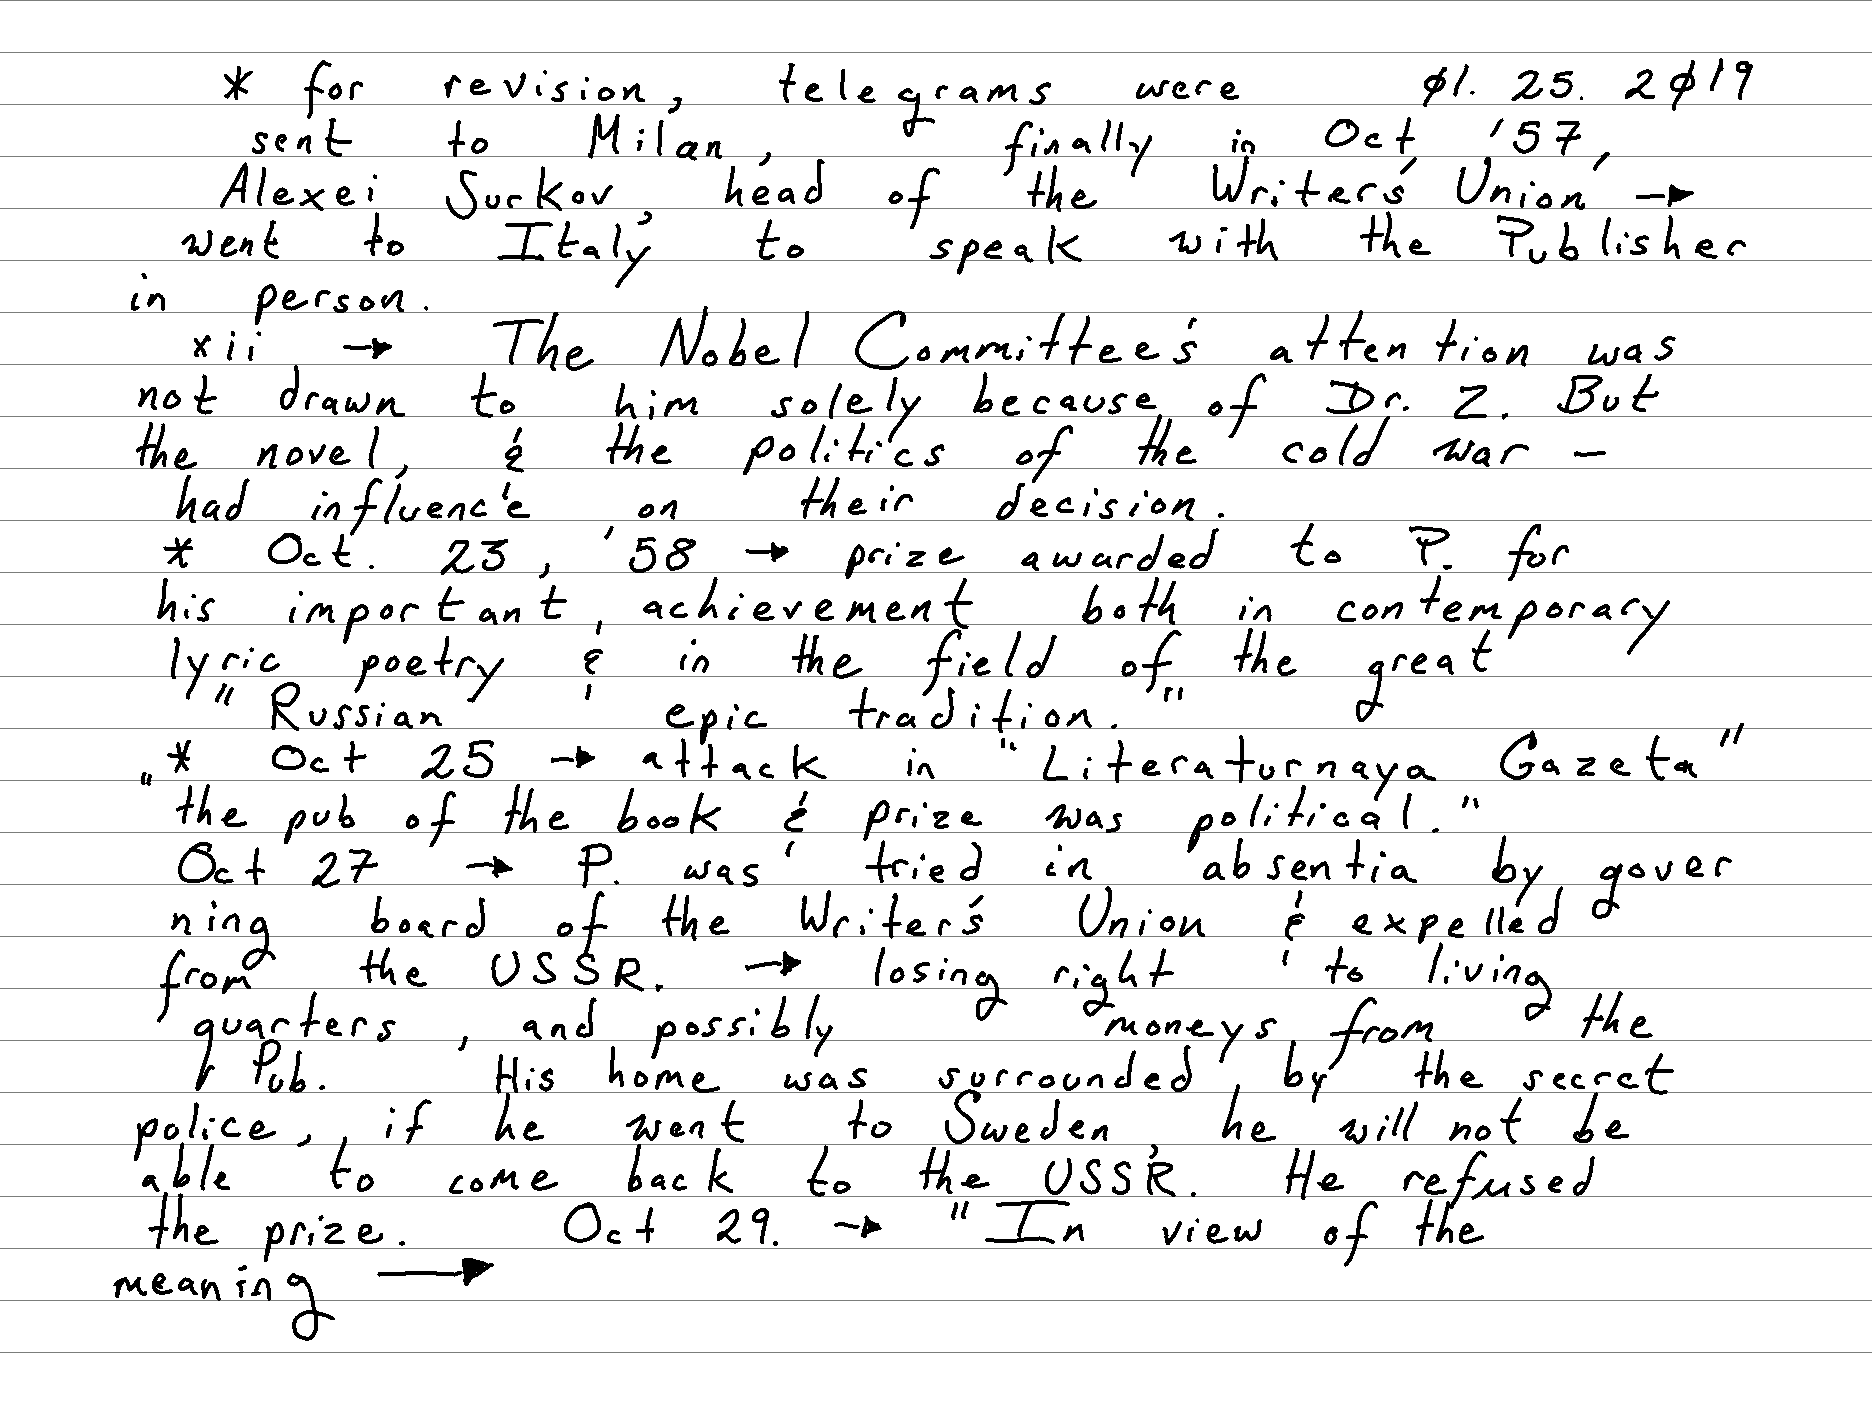 * for revision, telegrams were 01. 25. 2019
sent to Milan, finally in Oct '57,
Alexei Surkov, head of the Writer's Union →
went to Italy to speak with the Publisher
in person.
xii → The Nobel Committee's attention was
not drawn to him solely because of Dr. Z. But
the novel, & the politics of the cold war –
had influence on their decision.
* Oct. 23, '58 → prize awarded to P. for
his important achievement both in contemporary
lyric poetry & in the field of the great
" Russian epic tradition."
* Oct 25 → attack in "Literaturnaya Gazeta"
"the pub of the book & prize was political."
Oct 27 → P. was tried in absentia by gover
ning board of the Writer's Union & expelled
from the USSR. → losing right to living
quarters, and possibly moneys from the
Pub. His home was surrounded by the secret
police, if he went to Sweden, he will not be
able to come back to the USSR. He refused
the prize. Oct 29. → "In view of the
meaning →